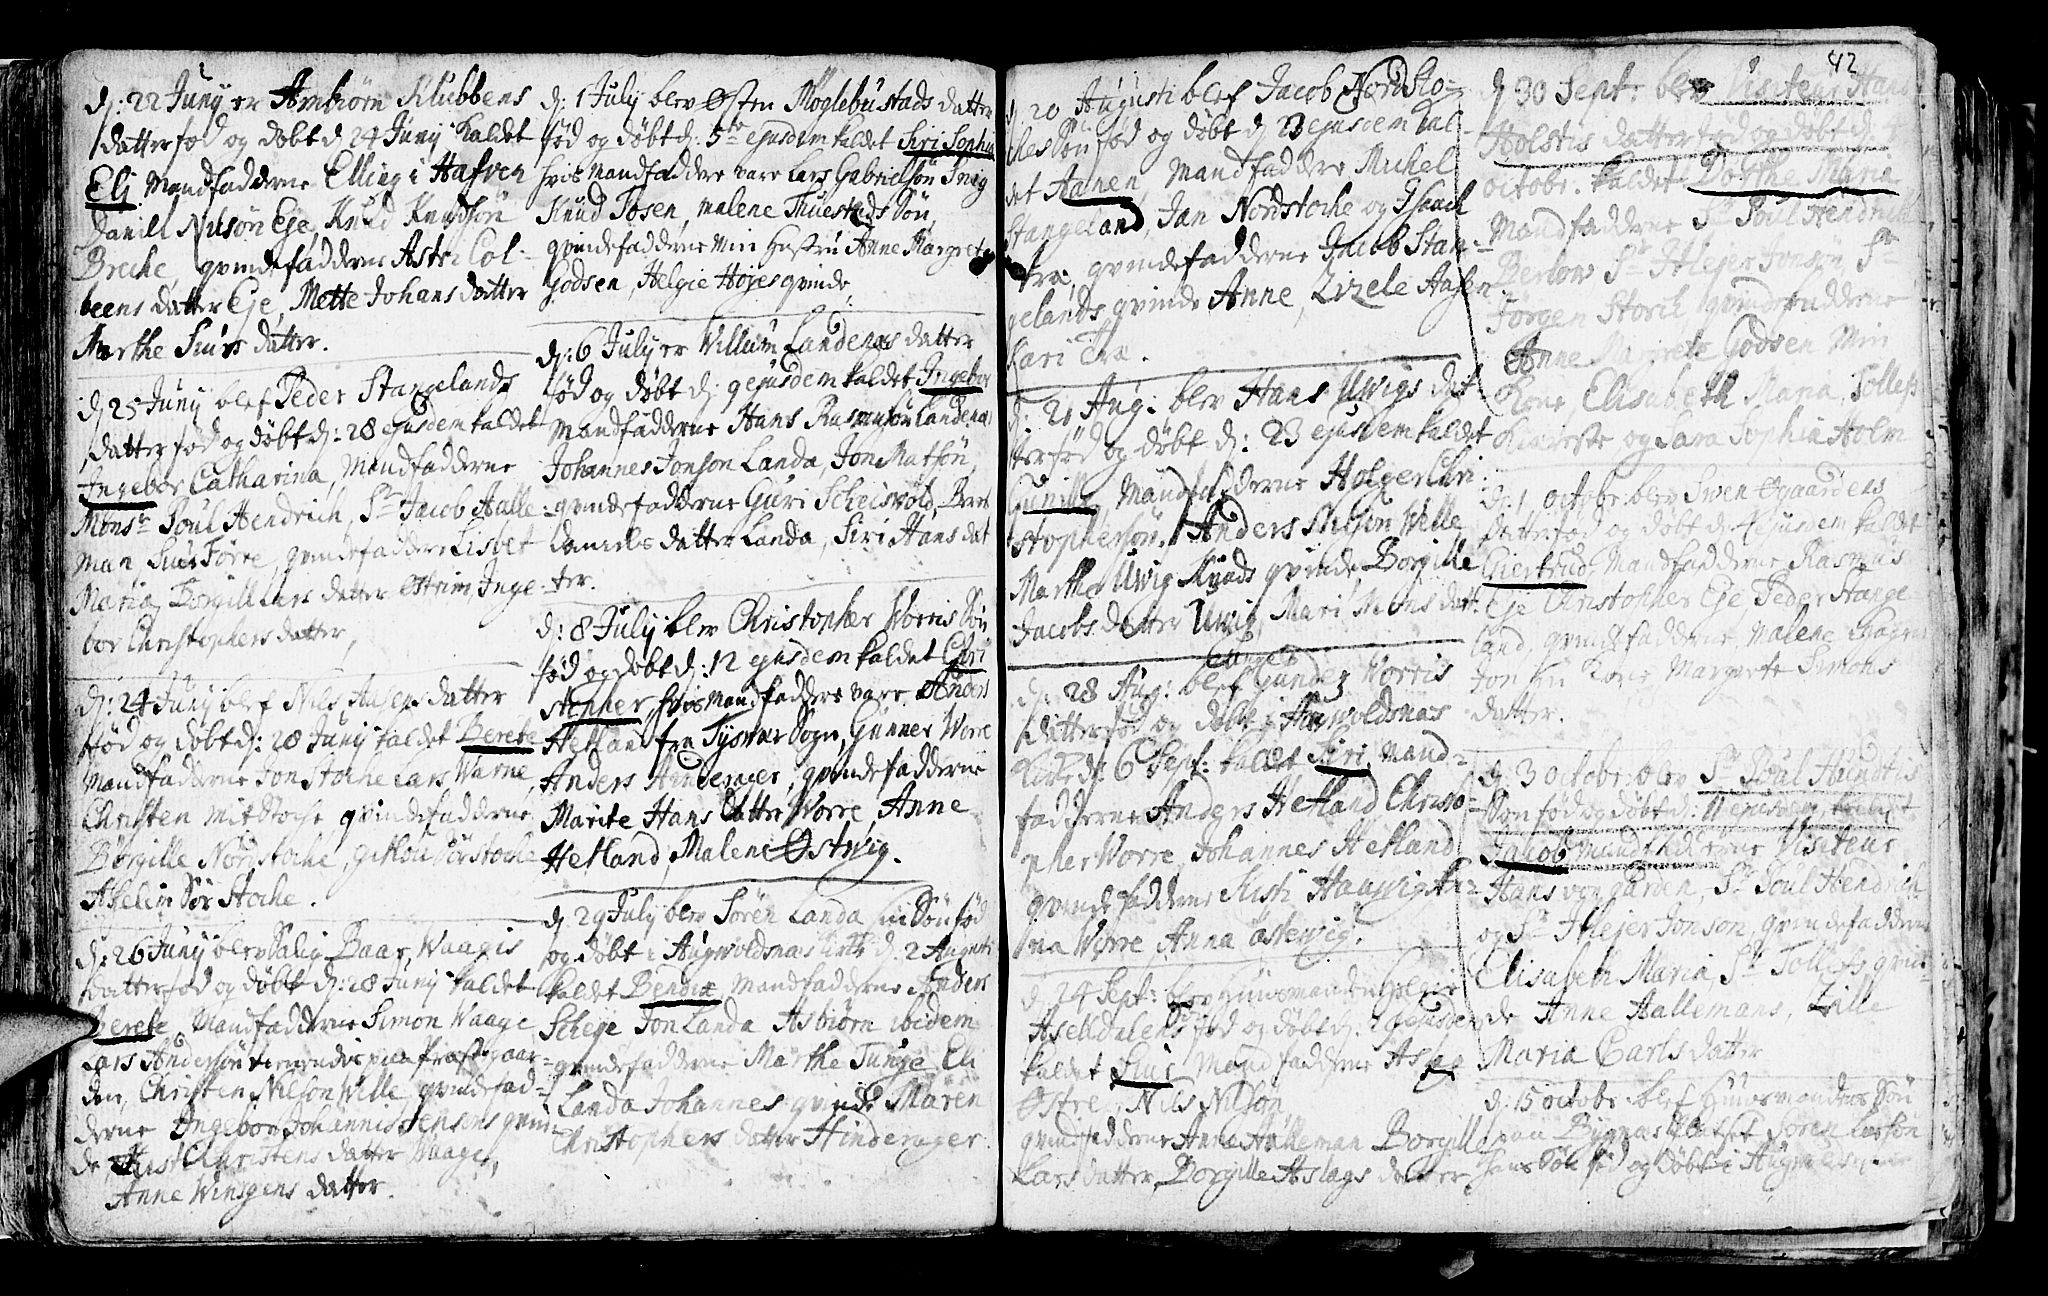 d: 22 Junij er Arnbiörn Klubbens
datter fød og døbt d 24 Junij kaldet
Eli Mandfadderne Elling i Hafven
Daniel Nilsøn Eje, Knud Knudsøn
Breche, qvindefadderne Astri Col-
beens datter Eje, Mette Johans datter
Marthe Siurs datter.
d 25 Junij blef Peder Stangelands
datter fød og døbt d: 28 ejusdem kaldet
Ingebor Catharina, Mandfadderne
Monsr Poul Hendrich, Sr Jacob Halle-
man Siur Førre, qvindefaddere Lisbet
Maria, Borgill Lars datter Østrim, Inge-
bor Christophers datter,
d: 24 Junij blef Nils Aasens datter
fød og døbt d: 28 Junij kaldet Berete
Mandfadderne Jon Stoche Lars Warne,
Christen Mitstoche, qvindefadderne
Børgille Nordstoche, Sørstoche
Sør Stoche.
d: 26 Junij blev Salig Baar Waagis
datter fød og døbt d: 28 Junij kaldet
Berete Mandfadderne Simon Waage
Lars Andersøn paa Præstegaar-
den, Christen Nilsøn Wille qvindefad-
derne Ingebor Johannis Jensens qvin-
de, Christens datter Waage,
Anne Winsgens datter.
d: 1 July blev Østen Møglebustads datter
fød og døbt d: 5te ejusdem kaldet Siri Sophia
hvis Mandfaddere vare Lars Gabrielsøn Snig
Knud Tosen, Malene Thuestads Søn,
qvindefadderne Min Hustru Anne Margrete
Godsen, Helgie Højes qvinde,
d: 6 July er Willum Landenæs datter
fød og døbt d: 9 ejusdem kaldet Ingebor
Mandfadderne Hans Rasmusøn Landenæs
Johannes Jonson Landa, Jon Matsøn,
qvindefadderne Guri Scheiswold, Beret
Daniels datter Landa, Siri Hans dat
ter.
d: 8 July blev Christopher Worris Søn
fød og døbt d: 12 ejusdem kaldet Chri
stopher, hvis Mandfaddere vare Anders
Hetland fra Tysvær Sogn, Gunner Worre
Anders Hinderager, qvindefadderne
Marite Hans datter Worre, Anne
Hetland, Malene Østwig.
d 29 July blev Søren Landa en Søn fød
og døbt i Augwoldsnæs Kirke d. 2 Augusti
kaldet Bendix Mandfadderne Anders
Scheje Jon Landa Asbiørn ibidem
qvindefadderne Marthe Tunge, Eli
Landa Johannes qvinde Maren
Christophers datter Hinderager.
42
d 20 Augusti blef Jacob Nordsto-
ches Søn fød og døbt d 23 ejusdem kal-
det Aanen Mandfaddere Michel
Stangeland, Jan Nordstoche og Isaach
Træ, qvindefadderne Jacob Stan-
gelands qvinde Anne, Lizele Aasen
Kari Træ.
d: 21 Aug: blev Hans Uwigs dat
ter fød og døbt d: 23 ejusdem kaldet
Gunille Mandfadderne Holger Chri-
stophersøn, Anders Nilsøn Welle,
Marthe Uwig Knuds qvinde, Borgille
Jacobs datter Uwig, Mari Mons dat:
d: 28 Aug: blef Gunder Worris
datter fød og døbt i Augwoldsnæs
Kirke d: 6 Sept: kaldet Siri, Mand-
fadderne Anders Hetland Christo-
pher Worre, Johannes Hetland
qvindefadderne Kisti Haawig An-
na Worre Anna Østewig.
d 24 Sept: blev Huusmanden Helgie
Aselldalens fød og døbt d: ejusdem
kaldet Siur, Mandfadderne Aslag
Østre, Nils Nilsøn
qvindefadderne Anne Halleman Borgill
Lars datter, Borgille Aslags datter,
d 30 Sept: blev Visiteur Hans
Holstis datter fød og døbt d. 4
octobr. kaldet Dorthe Maria
Mandfadderne Sr Poul Hendrich
Berlow Sr Thejer Jonsøn, Sr
Jørgen Storch, qvindefadderne
Anne Marirete Godsen Min
Kone Elisabeth Maria, Tollefs
og Sara Sophia Holm
d: 1 octobr. blev Swen Øgaardens
datter fød og døbt d 4 ejusdem kaldt
Giertrud, Mandfadderne Rasmus
Eje Christopher Eje, Peder Stange
land, qvindefadderne, Malene
Kone Margrete Simons
datter.
d. 3 octobr. blev Sr Poul Hundtis
Søn fød og døbt d: 11 ejusdem, kaldet
Jacob Mandfadderne Visiteur
Hans von Gården, Sr Poul Hendrich
og Sr Thejer Jonson, qvindefaddere
Elisabeth Maria, Sr Tollefs qvin-
de Anne Hallemans, Zille
Maria Carls datter
d. 15 octobr. blef Huusmandens Søn
paa Bygnæs Søren Larsøn
hans Søn fød og døbt i Augwoldsnæs